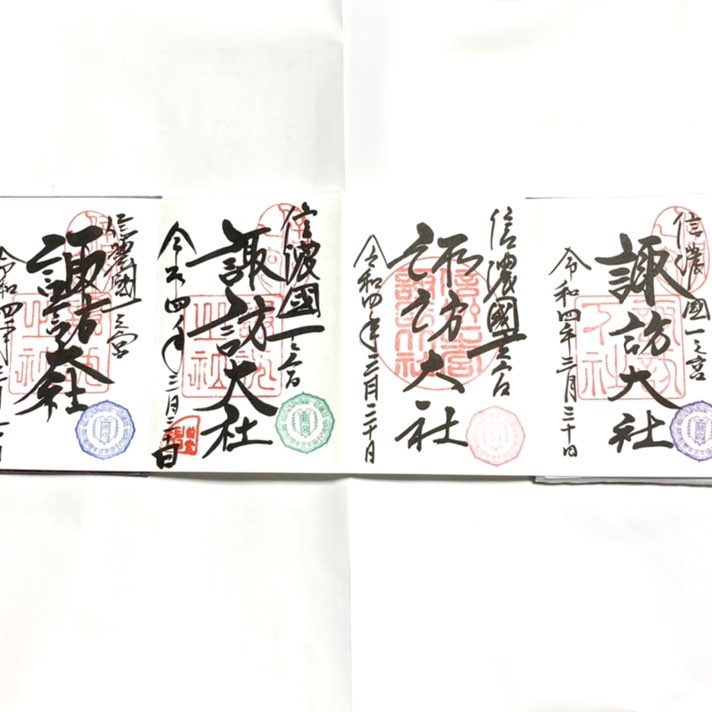 信濃國一之宮
諏訪大社
令和四年三月三十日
信濃國一之宮
諏訪大社
令和四年三月三十日
信濃國一之宮
諏訪大社
令和四年三月三十日
信濃國一之宮
諏訪大社
令和四年三月